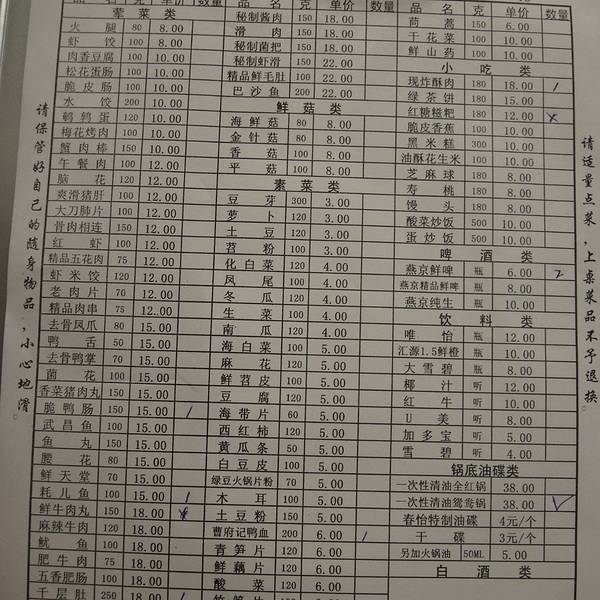 品 名 克 单价 数量
荤菜类
火腿 80 8.00
虾饺 100 8.00
肉香豆腐 100 10.00
松花蛋肠 100 10.00
脆皮肠 100 10.00
水饺 200 10.00
鹌鹑蛋 120 10.00
梅花烤肉 100 10.00
蟹肉棒 150 10.00
午餐肉 100 12.00
脑花 120 12.00
爽滑猪肝 100 12.00
大刀肺片 100 12.00
骨肉相连 150 12.00
红虾 100 12.00
精品五花肉 75 12.00
虾米饺 120 12.00
老肉片 70 12.00
精品肉串 75 12.00
去骨凤爪 80 15.00
鸭舌 50 15.00
去骨鸭掌 70 15.00
菌花 100 15.00
香菜猪肉丸 100 15.00
脆鸭肠 150 15.00
武昌鱼 100 15.00
鱼丸 150 15.00
腰花 80 15.00
鲜天堂 70 15.00
耗儿鱼 100 15.00
鲜牛肉丸 150 18.00
麻辣牛肉 120 18.00
鱿鱼 100 18.00
肥牛肉 75 18.00
五香肥肠 100 18.00
千层肚 210 18.00
品 名 克 单价 数量
秘制酱肉 150 18.00
滑肉 150 18.00
秘制菌把 150 18.00
秘制虾滑 150 22.00
精品鲜毛肚 100 22.00
巴沙鱼 200 22.00
鲜菇类
海鲜菇 80 8.00
金针菇 80 8.00
香菇 100 8.00
平菇 100 8.00
素菜类
豆芽 300 3.00
萝卜 120 3.00
土豆 120 3.00
苕粉 100 3.00
化白菜 120 4.00
凤尾 100 4.00
冬瓜 120 4.00
生菜 100 4.00
南瓜 120 4.00
海白菜 100 5.00
麻花 120 5.00
鲜苕皮 100 5.00
豆腐 120 5.00
海带片 60 5.00
西红柿 120 5.00
黄瓜条 50 5.00
白豆皮 100 5.00
绿豆火锅片粉 70 5.00
木耳 100 5.00
土豆粉 150 5.00
曹府记鸭血 200 6.00
青笋片 120 6.00
鲜藕片 120 6.00
酸菜 120 6.00
品 名 克 单价 数量
茼蒿 150 6.00
干花菜 100 10.00
鲜山药 100 10.00
小吃类
现炸酥肉 180 18.00
绿茶饼 180 15.00
红糖糍粑 180 12.00
脆皮香蕉 100 10.00
黑米糕 300 10.00
油酥花生米 100 10.00
芝麻球 180 8.00
寿桃 180 8.00
馒头 180 8.00
酸菜炒饭 500 10.00
蛋炒饭 500 10.00
啤酒类
燕京鲜啤 瓶 6.00 2
燕京精品鲜啤 瓶 8.00
燕京纯生 瓶 10.00
饮料类
唯怡 瓶 12.00
汇源1.5鲜橙 瓶 10.00
大雪碧 瓶 8.00
椰汁 听 12.00
红牛 听 10.00
U美 听 8.00
加多宝 听 5.00
雪碧 听 4.00
锅底油碟类
一次性清油全红锅 38.00
一次性清油鸳鸯锅 38.00
春怡特制油碟 4元/个
干碟 3元/个
另加火锅油 50ML 5.00
白酒类
请保管好自己的随身物品,小心地滑。
请适量点菜,上桌菜品不予退换。